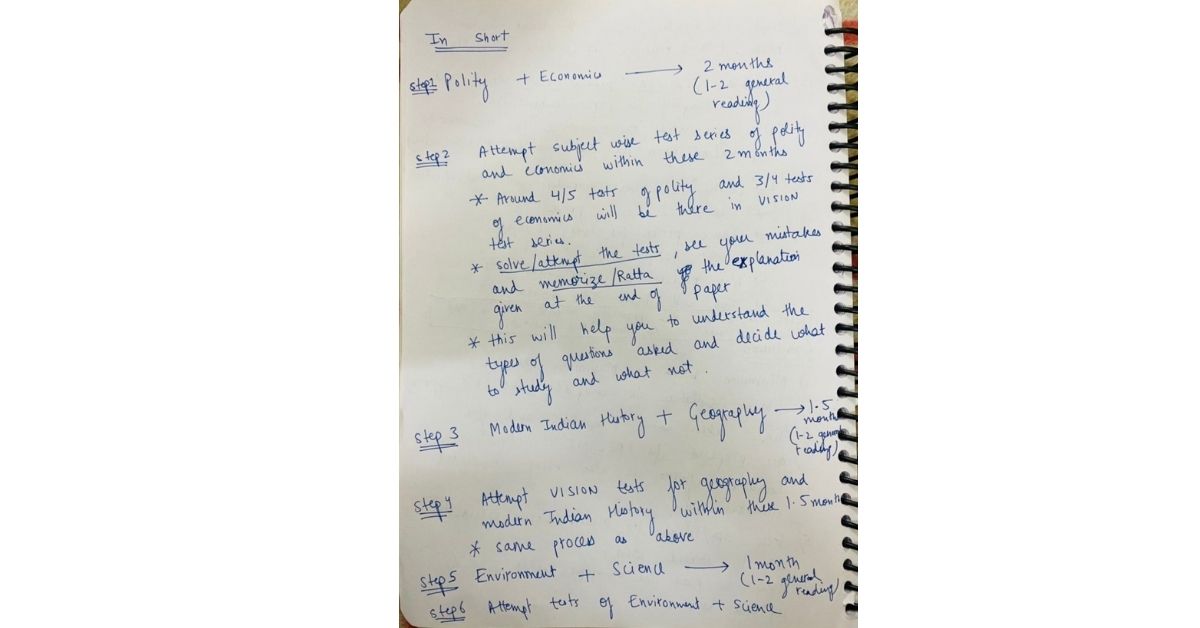 In Short
Step1 Polity + Economics → 2 months
(1-2 general
reading)
Step2 Attempt subject wise test series of polity
and economics within these 2 months
* Around 4/5 tests of polity and 3/4 tests
of economics will be there in VISION
test series.
* solve/attempt the tests, see your mistakes
and memorize/Ratta the explanation
given at the end of paper
* this will help you to understand the
types of questions asked and decide what
to study and what not.
Step 3 Modern Indian History + Geography → 1.5
month
(1-2 general
reading)
Step 4 Attempt VISION tests for geography and
modern Indian History within these 1.5 month
* same process as above
Step5 Environment + Science → 1 month
(1-2 general
reading)
Step6 Attempt tests of Environment + Science